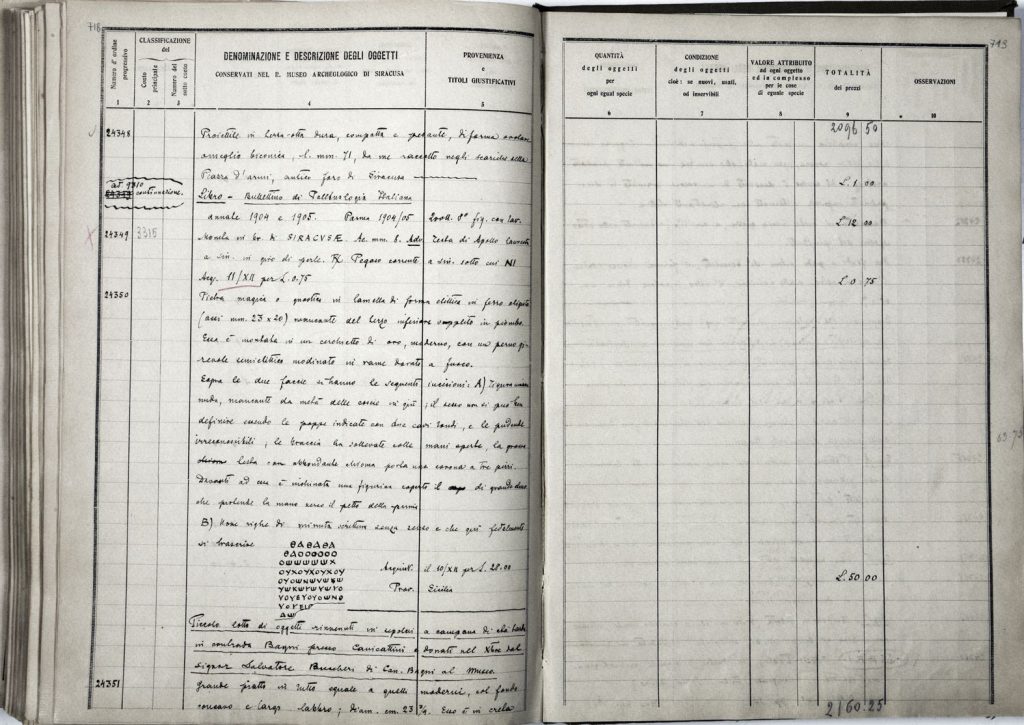 718
Numero d'ordine progressivo
CLASSIFICAZIONE del
Conto principale
Numero del sotto conto
DENOMINAZIONE E DESCRIZIONE DEGLI OGGETTI
CONSERVATI NEL R. MUSEO ARCHEOLOGICO DI SIRACUSA
PROVENIENZA
e
TITOLI GIUSTIFICATIVI
1 2 3 4 5
24348 Proiettile in terra cotta dura, compatta e pesante, di forma ovolare
o meglio biconica, l. mm. 71, da me raccolto negli scarichi della
Piazza d'armi, antico foro di Siracusa
continuazione. Libro - Bullettino di Paletnologia Italiana
annate 1904 e 1905. Parma 1904/05 8° fig. con tav.
24349 3315 Moneta in br. di SIRACVSÆ. Ae mm. Adv. Testa di Apollo laureata
a sin. in giro di perle. R) Pegaso corrente a sin. sotto cui NI
Acq. 11/XII per L. 0.75
24350 Pietra magica o gnostica in lamella di forma elittica in ferro
(assi mm. 23 x 20) mancante del terzo inferiore in piombo.
Essa è montata in un cerchietto di oro, moderno, con un perno gi-
revole semielittico modinato in rame dorato a fuoco.
Sopra le due faccie si hanno le seguenti incisioni: A) Figura umana
nuda, mancante da metà delle coscie in giù; il sesso non si può ben
definire essendo le poppe indicate con due cavi tondi, e le pudende
irreconoscibili; le braccia ha sollevate colle mani aperte, la
testa con abbondante chioma porta una corona a tre pizzi.
Davanti ad essa è inchinata una figurina coperta il di
che protende la mano verso il petto della prima
B) Nove righe di minuta scrittura senza senso e che qui fedelmente
si trascrive
ΘΑΘΑΘΑ
Acquist. il 10/XII per L. 28.00
Prov. Sicilia
Piccolo lotto di oggetti rinvenuti in sepolcri a campana di età
in contrada Bagni presso Canicattini e donati nel dal
signor Salvatore Buccheri di Can. Bagni al Museo.
24351 Grande piatto in tutto eguale a quelli moderni, col fondo
concavo e largo labbro; diam. cm. 23 Esso è in creta
713
QUANTITÀ
degli oggetti
per
ogni egual specie
CONDIZIONE
degli oggetti
cioè: se nuovi, usati,
od inservibili
VALORE ATTRIBUITO
ad ogni oggetto
ed in complesso
per le cose
di eguale specie
TOTALITÀ
dei prezzi
OSSERVAZIONI
6 7 8 9 10
2096 50
L. 1 00
L. 12 00
L. 0 75
L. 50 00
2160.25